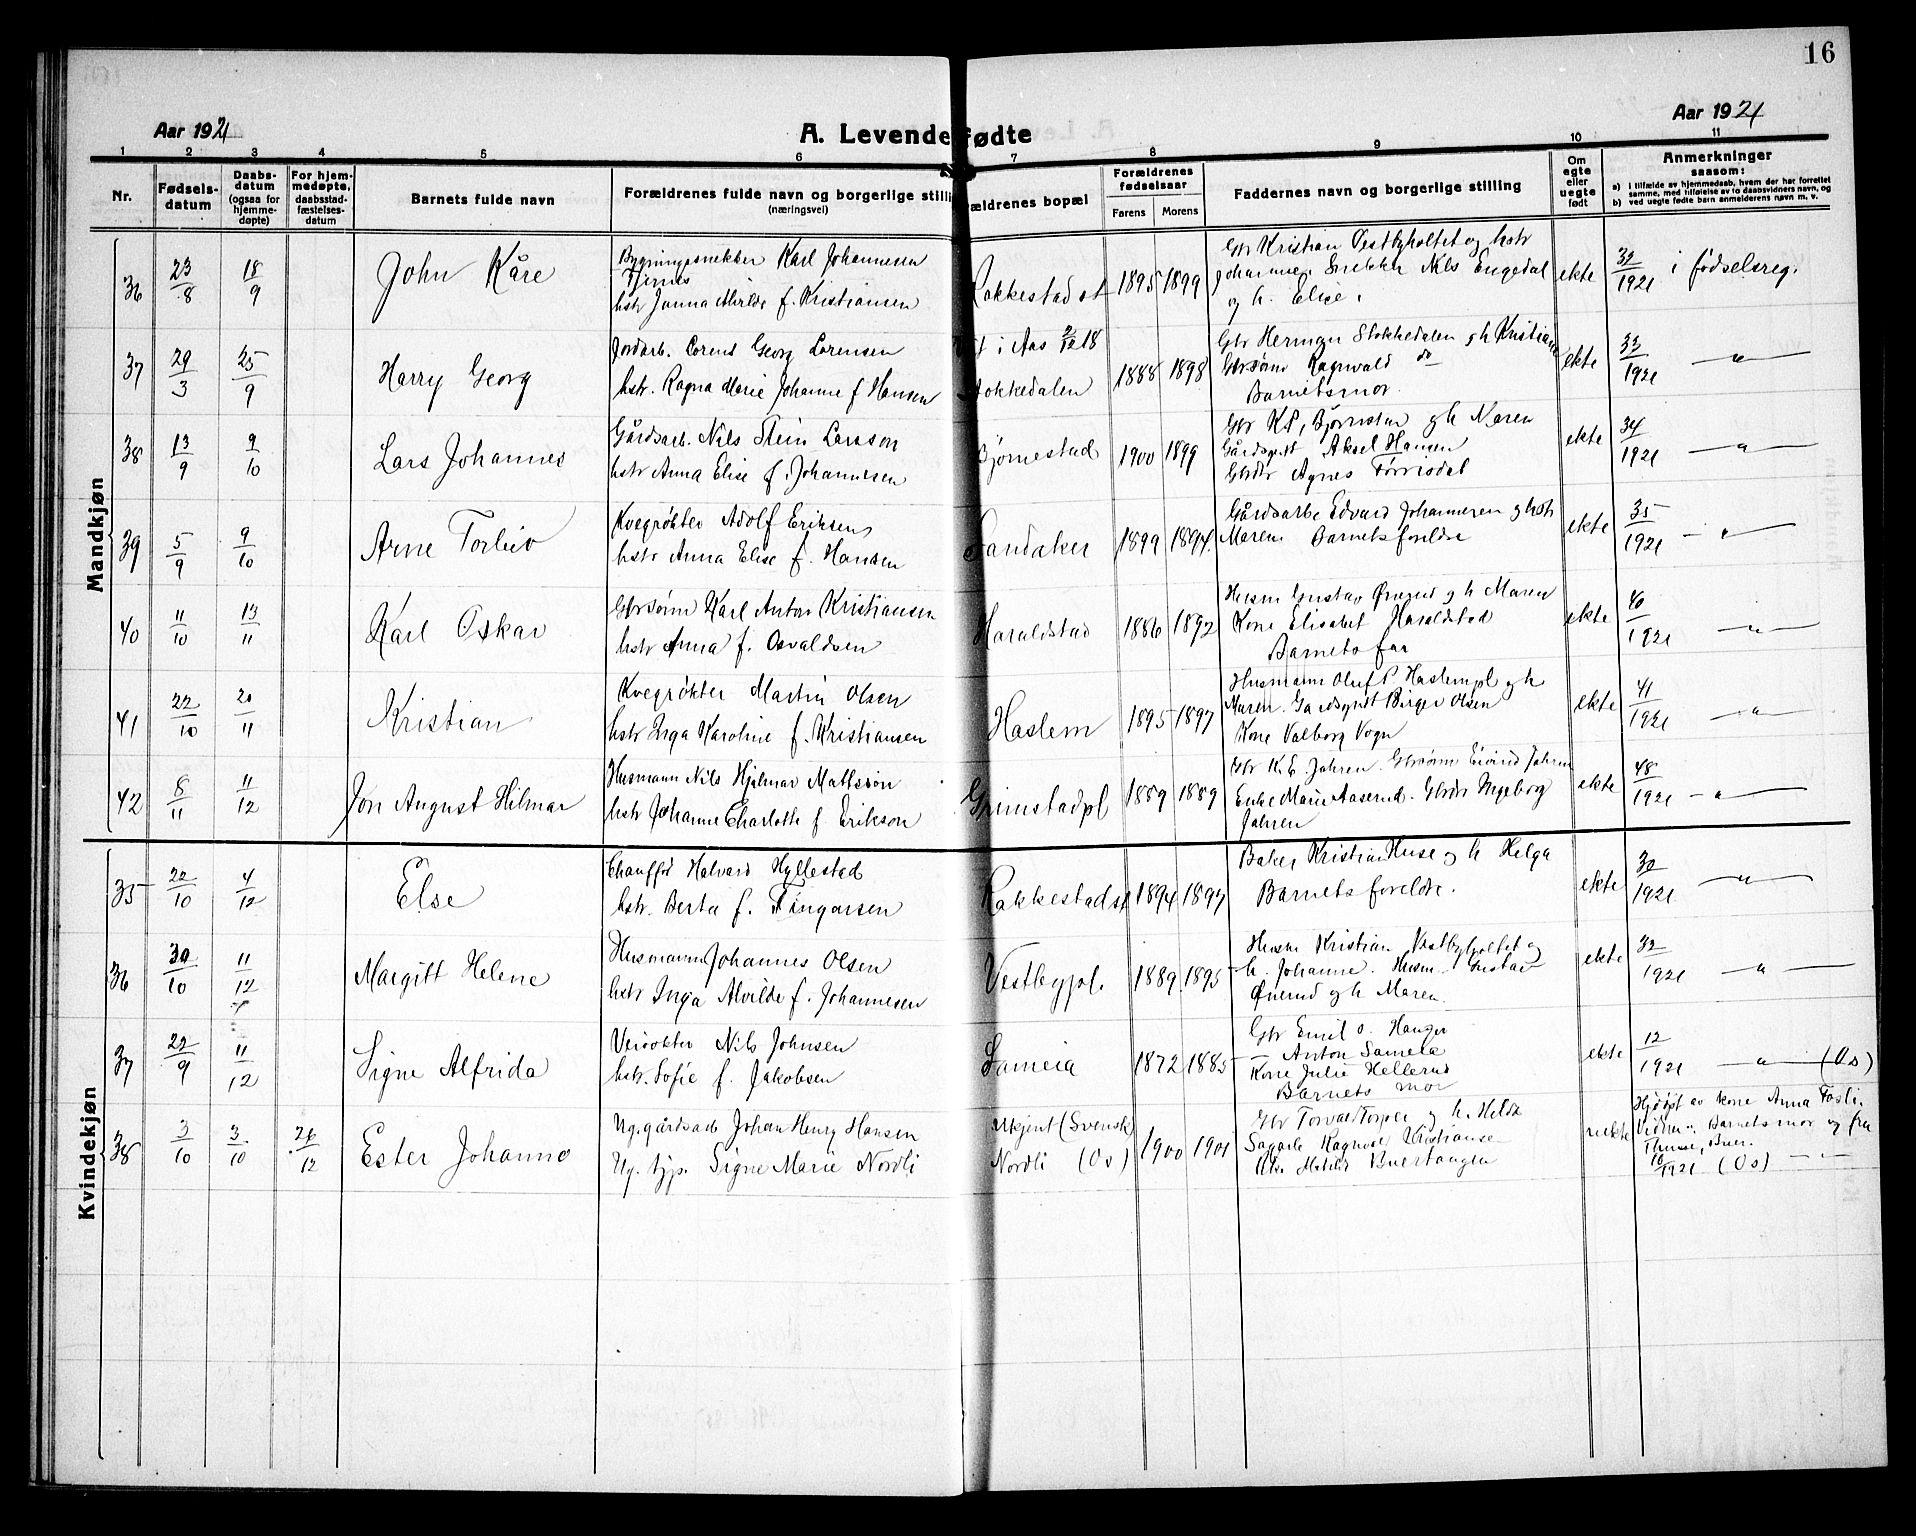 16
Aar 1921
A. Levendefødte
Aar 1921
1 2 3 4 5 6 7 8 9 10 11
Nr.
Fødsels-
datum
Daabs-
datum
(ogsaa for
hjemme-
døpte)
For hjem-
medøpte,
daabsstad-
fæstelses-
datum
Barnets fulde navn
Forældrenes fulde navn og borgerlige stilli
(næringsvei)
ældrenes bopæl
Forældrenes
fødselsaar
Farens Morens
Faddernes navn og borgerlige stilling
Om
egte
eller
uegte
født
Anmerkninger
saasom:
a) i tilfælde av hjemmedaab, hvem der har forrettet
samme, med tilføielse av to daabsvidners navn, og
b) ved uegte fødte barn anmelderens navn m. v.
Mandkjøn
36 23/8 18/9 John Kåre
Bygningssnekker Karl Johannesen
Tjernes
hstr Janna Alvilde f. Kristiansen
Rakkestad st 1895 1899
Gbr Kristian Vestbyholtet og hstr
Johanne. Snekker Nils Engedal
og h. Elise.
ekte 32/1921 i fødselsreg.
37 29/3 25/9 Harry Georg
Jordarb. Lorens Georg Lorensen
hstr. Ragna Marie Johanne f Hansen
i Aas 2/12 18
Stokkedalen 1888 1898
Gbr Herman Stokkedalen og h Kristiane
Gbrsønn Ragnvald do
Barnets mor.
ekte 33/1921 — " —
38 13/9 9/10 Lars Johannes
Gårdsarb. Nils Stein Larsson
hstr Anna Elise f. Johannesen
Bjørnestad 1900 1899
Gbr K.P. Bjørnstad og h Maren
Gårdsgutt Aksel Hansen
Gbrdtr Agnes Torrisdal
ekte 34/1921 — " —
39 5/9 9/10 Arne Torleiv
Kvegrøkter Adolf Eriksen,
hstr Anna Elise f. Hansen
Sandaker 1899 1894.
Gårdsarbe Edvard Johannesen og hstr
Maren Barnets foreldre
ekte 35/1921 — " —
40 11/10 13/11 Karl Oskar
Gbrsønn Karl Anton Kristiansen
hstr Anna f. Osvaldsen
Haraldstad 1886 1892
Husm Gustav Ønerud og h Maren
Kone Elisabet Haraldstad
Barnets far
ekte 40/1921 — " —
41 22/10 20/11 Kristian
Kvegrøkter Martin Olsen
hstr Inga Karoline f. Kristiansen
Haslem 1895 1897
Husmann Oluf P Haslempl og h
Maren. Gardsgutt Birger Olsen
Kone Valborg Vogn
ekte 41/1921 — " —
42 8/11 11/12 Jon August Hilmar
Husmann Nils Hjalmar Mattsson
hstr Johanne Charlotte f Erikson
Grimstadpl 1889 1889
Gbr K.E. Jahren. Gbrsønn Eivind Jahren
Enke Marie Aaserud. Gbrdtr Ingeborg
Jahren
ekte 48/1921 — " —
Kvindekjøn
35 22/10 4/12 Else
Chauffør Halvard Hyllestad
hstr. Berta f. Fingarsen
Rakkestad st 1894 1897
Baker Kristian Huse og h Helga
Barnets foreldre.
ekte 30/1921 — " —
36 30/10 11/12 Margitt Helene
Husmann Johannes Olsen
hstr Inga Alvilde f. Johannesen
Vestbypl. 1889 1895
Husm Kristian Vestbyholtet og
h. Johanne. Husm Gustav
Ønerud og h Maren.
ekte 32/1921 — " —
37 22/9 11/12 Signe Alfrida
Veivokter Nils Johnsen
hstr. Sofie f. Jakobsen
Sameia 1872 1885
Gbr Emil O. Hauger
— Anton Sameia
Kone Julie Hellerud
Barnets mor
ekte 12/1921 — " — (Os)
38 3/10 3/10 26/12 Ester Johanne
Ug. gårdsarb Johan Henry Hansen
Ug. tjp. Signe Marie Nordli
Ukjent (Svensk)
Nordli (Os) 1900 1901
Gbr Torvald Torper og h. Hilda
Sagarb Ragnvald Kristiansen
Buertangen
uekte
Hjdøpt av kone Anna Fosli.
Vidner: Barnets mor og fru
Buer.
10/1921 (Os) — " —